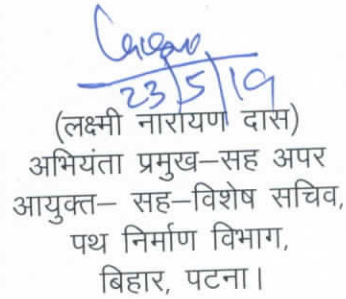 23/5/19
(लक्ष्मी नारायण दास)
अभियंता प्रमुख–सह अपर
आयुक्त– सह–विशेष सचिव,
पथ निर्माण विभाग,
बिहार, पटना।